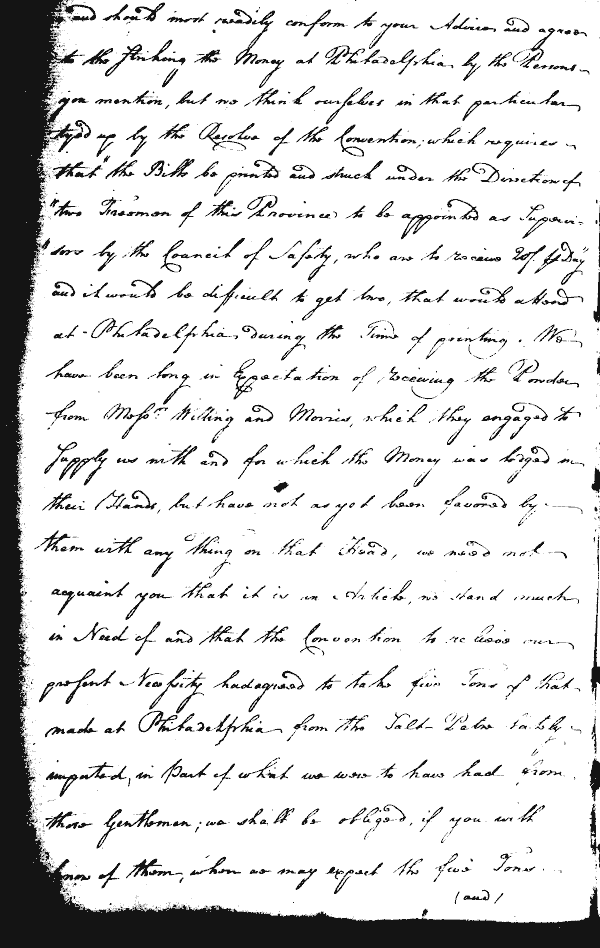 and should most readily conform to your Advice and agree
to the Striking the Money at Philadelphia by the Persons
you mention, but we think ourselves in that particular
tyed up by the Resolve of the Convention; which requires
that "the Bills be printed and struck under the Direction of
"two Freemen of this Province to be appointed as Supervi-
"sors by the Council of Safety, who are to receive 20/. ⅌ Day"
and it would be difficult to get two, that would attend
at Philadelphia during the Time of printing. We
have been long in Expectation of receiving the Powder
from Messrs. Willing and Morris, which they engaged to
Supply us with and for which the Money was lodged in
their Hands, but have not as yet been favored by
them with any thing on that Head, we need not
acquaint you that it is an Article, we stand much
in Need of and that the Convention to relieve our
present Necessity had agreed to take five Tons of that
made at Philadelphia from the Salt Petre lately
imported, in Part of what we were to have had from
those Gentlemen; we shall be obliged, if you will
know of them, when we may expect the five Tons
(and)